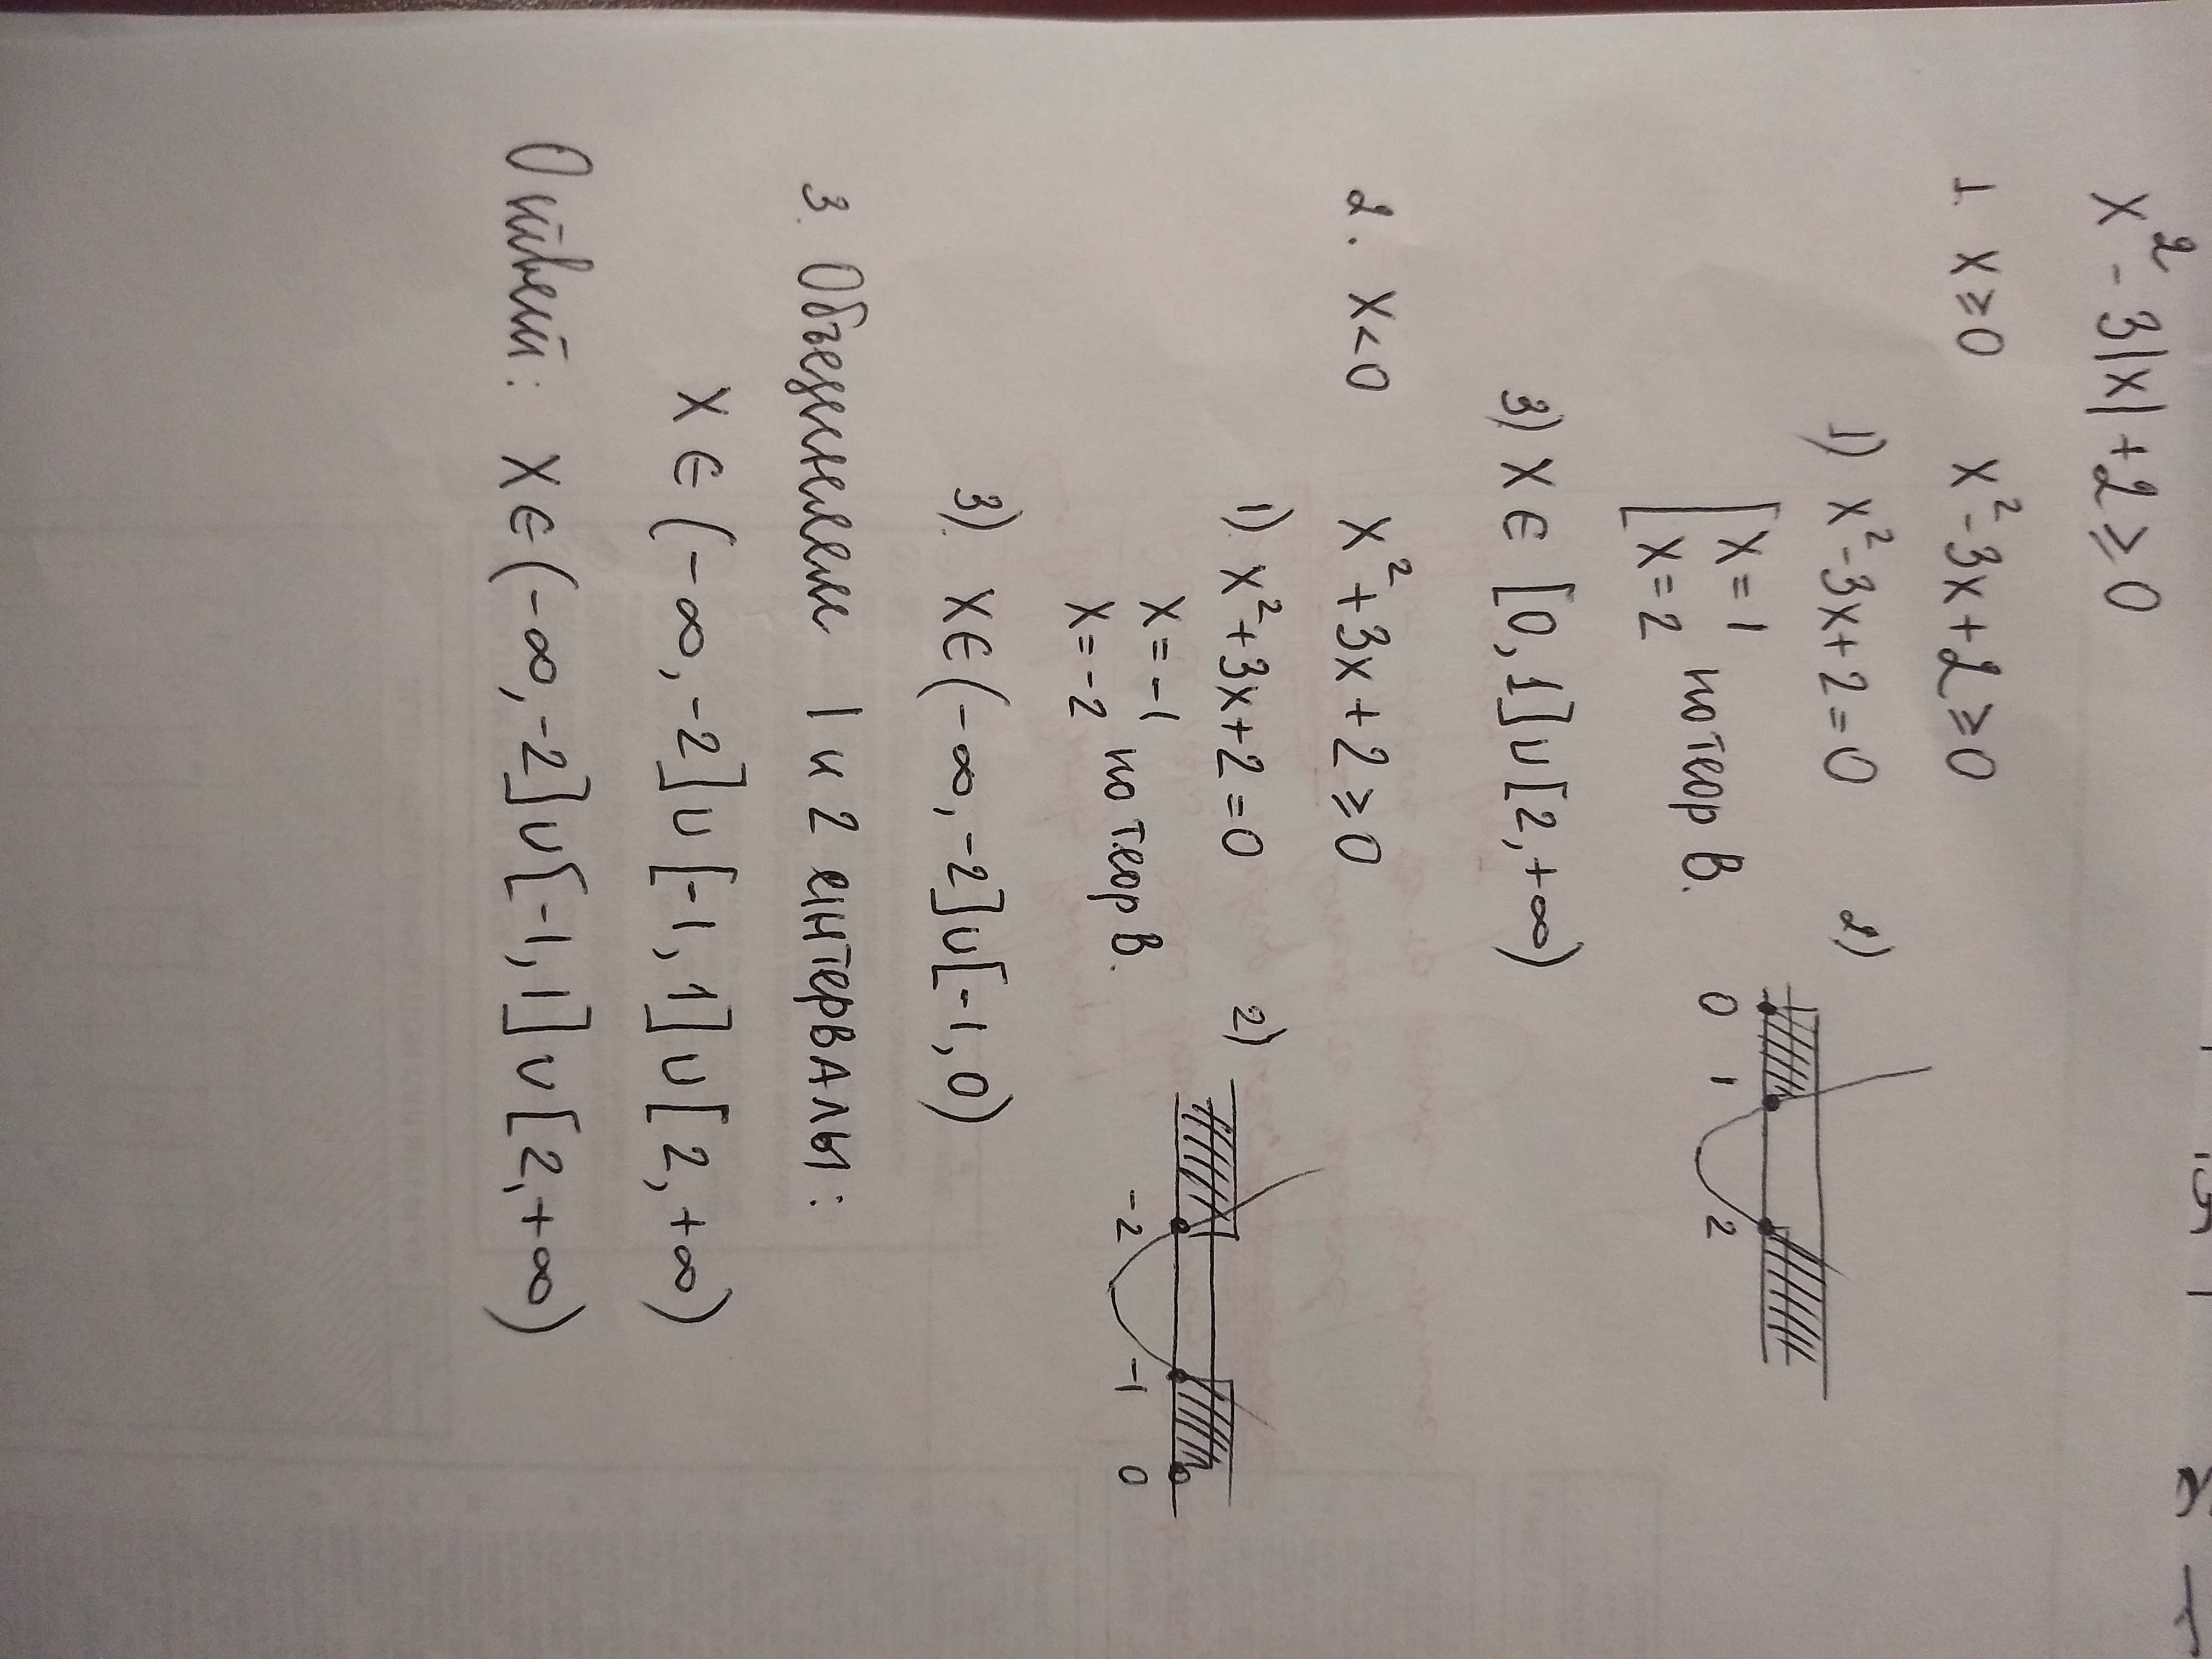 x² - 3|x| + 2 ≥ 0
1. x ≥ 0 x² - 3x + 2 ≥ 0
1) x² - 3x + 2 = 0 2)
[ x = 1
x = 2 по теор В.
0 1 2
3) x ∈ [0, 1] ∪ [2, +∞)
2. x < 0 x² + 3x + 2 ≥ 0
1) x² + 3x + 2 = 0 2)
x = -1
x = -2 по теор В.
-2 -1 0
3) x ∈ (-∞, -2] ∪ [-1, 0)
3. Объединяем 1 и 2 интервалы:
x ∈ (-∞, -2] ∪ [-1, 1] ∪ [2, +∞)
Ответ: x ∈ (-∞, -2] ∪ [-1, 1] ∪ [2, +∞)